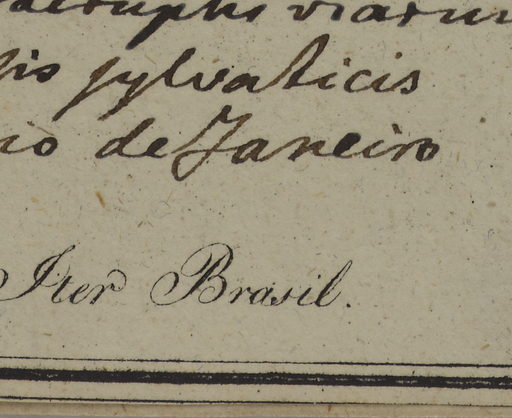 viarum
sylvaticis
de Janeiro
Iter Brasil.